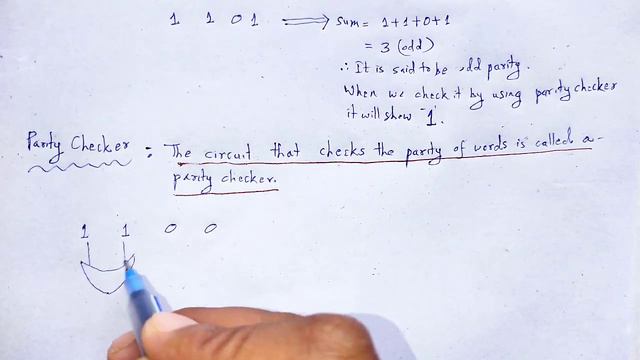 1 1 0 1 ⟹ sum = 1+1+0+1
= 3 (odd)
∴ It is said to be odd parity.
When we check it by using parity checker
it will show "1.
Parity Checker : The circuit that checks the parity of words is called a-
parity checker.
1 1 0 0